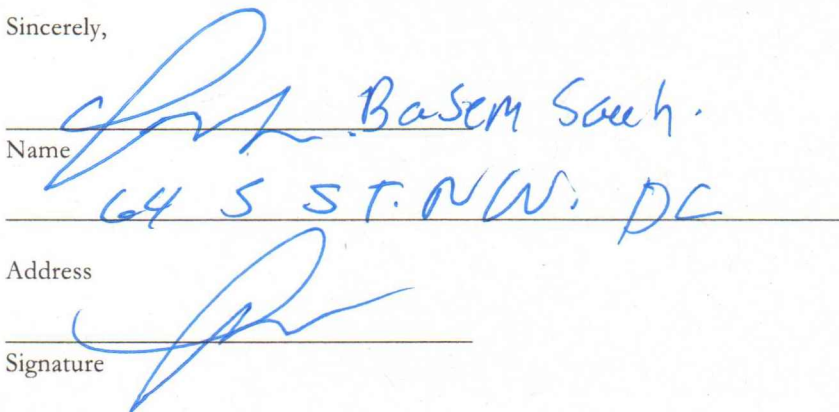 Sincerely,
Basem
Name
64 S ST. NW. DC
Address
Signature